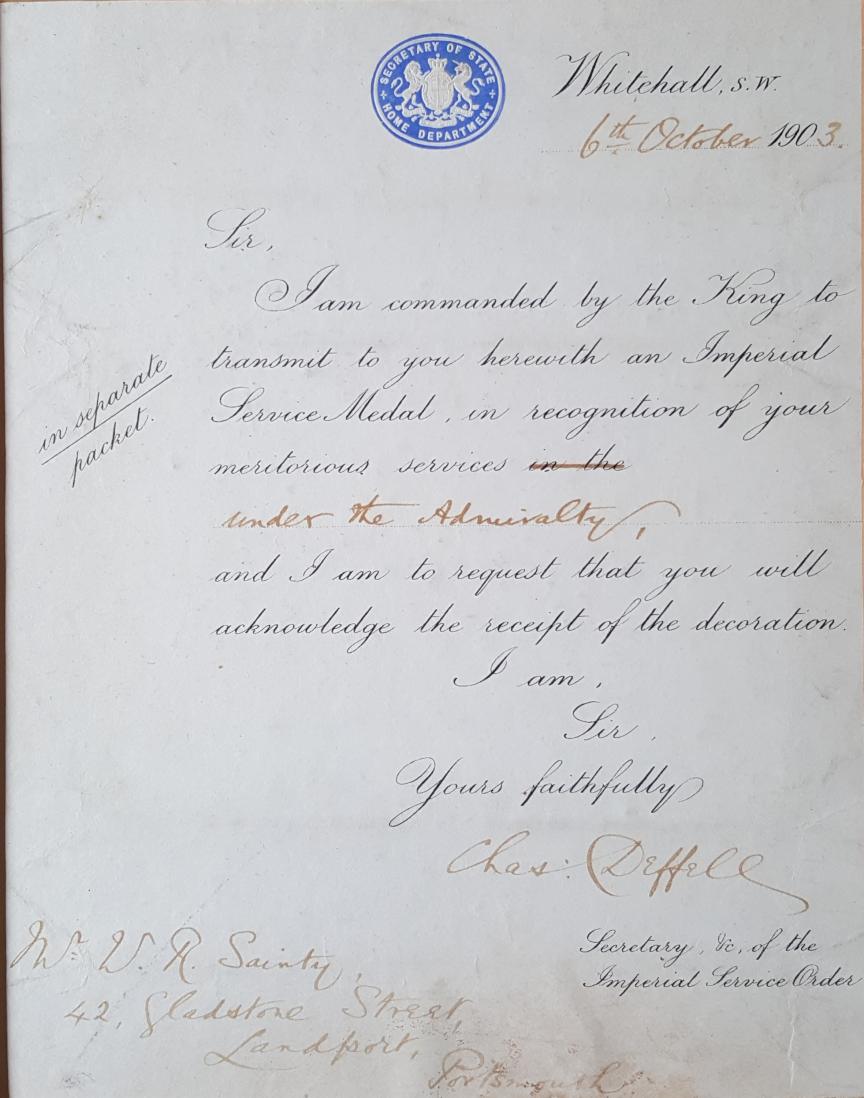 SECRETARY OF STATE
HOME DEPARTMENT
Whitehall, S.W.
6th October 1903.
Sir,
I am commanded by the King to
transmit to you herewith an Imperial
Service Medal, in recognition of your
meritorious services in the
under the Admiralty,
and I am to request that you will
acknowledge the receipt of the decoration.
in separate
packet.
I am,
Sir,
Yours faithfully
Chas: Deffell
Secretary, &c, of the
Imperial Service Order
Mr. W. R. Sainty,
42, Gladstone Street,
Landport,
Portsmouth